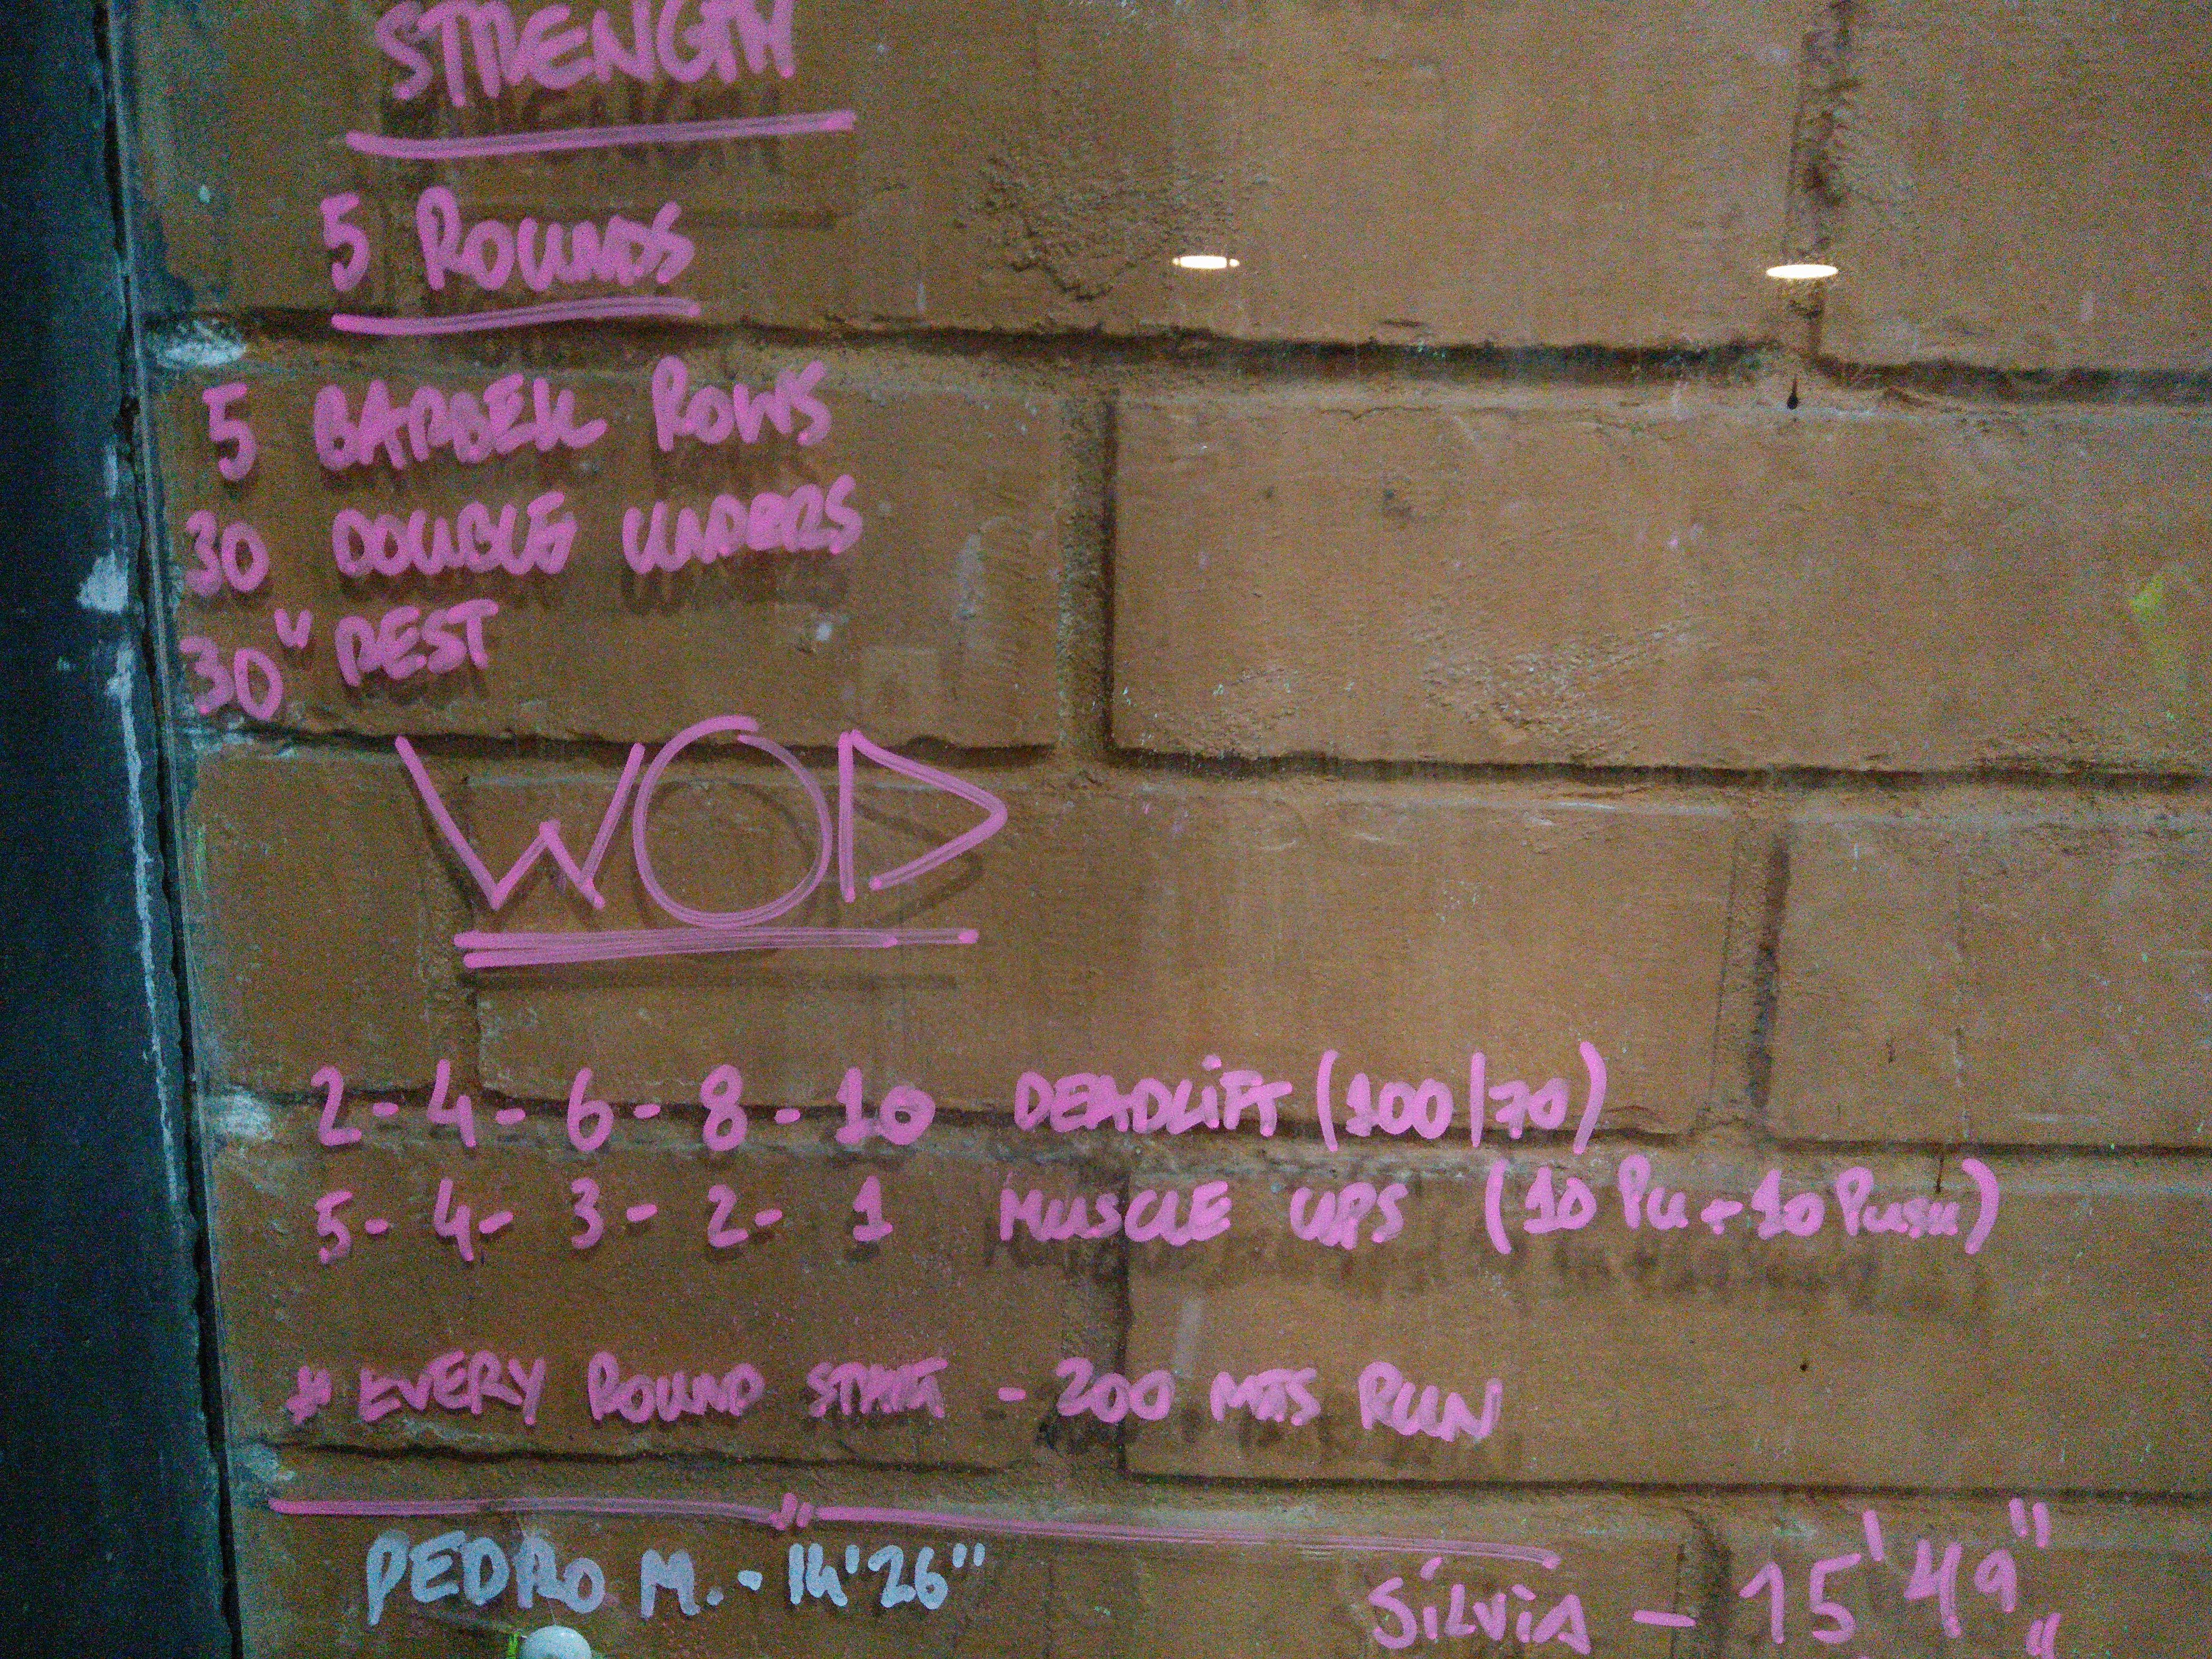 STRENGTH
5 ROUNDS
5 BARBELL ROWS
30 DOUBLE UNDERS
30" REST
WOD
2 - 4 - 6 - 8 - 10 DEADLiFT (100/70)
5 - 4 - 3 - 2 - 1 MUSCLE UPS (10 PU + 10 PUSH)
* EVERY ROUND START - 200 MTS RUN
PEDRO M. - 14'26"
SiLViA - 15'49"